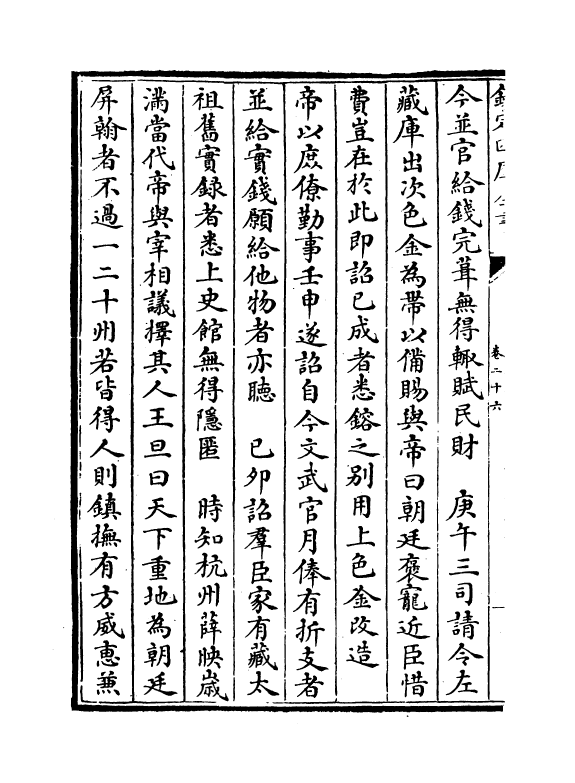 欽定四庫全書
卷二十六
今並官給錢完葺無得輙賦民財　庚午三司請令左
藏庫出次色金為帶以備賜與帝曰朝廷褒寵近臣惜
費豈在於此即詔已成者悉鎔之别用上色金改造
帝以庶僚勤事壬申遂詔自今文武官月俸有折支者
並給實錢願給他物者亦聽　己卯詔羣臣家有藏太
祖舊實録者悉上史館無得隱匿　時知杭州薛映歲
滿當代帝與宰相議擇其人王旦曰天下重地為朝廷
屏翰者不過一二十州若皆得人則鎮撫有方威恵兼